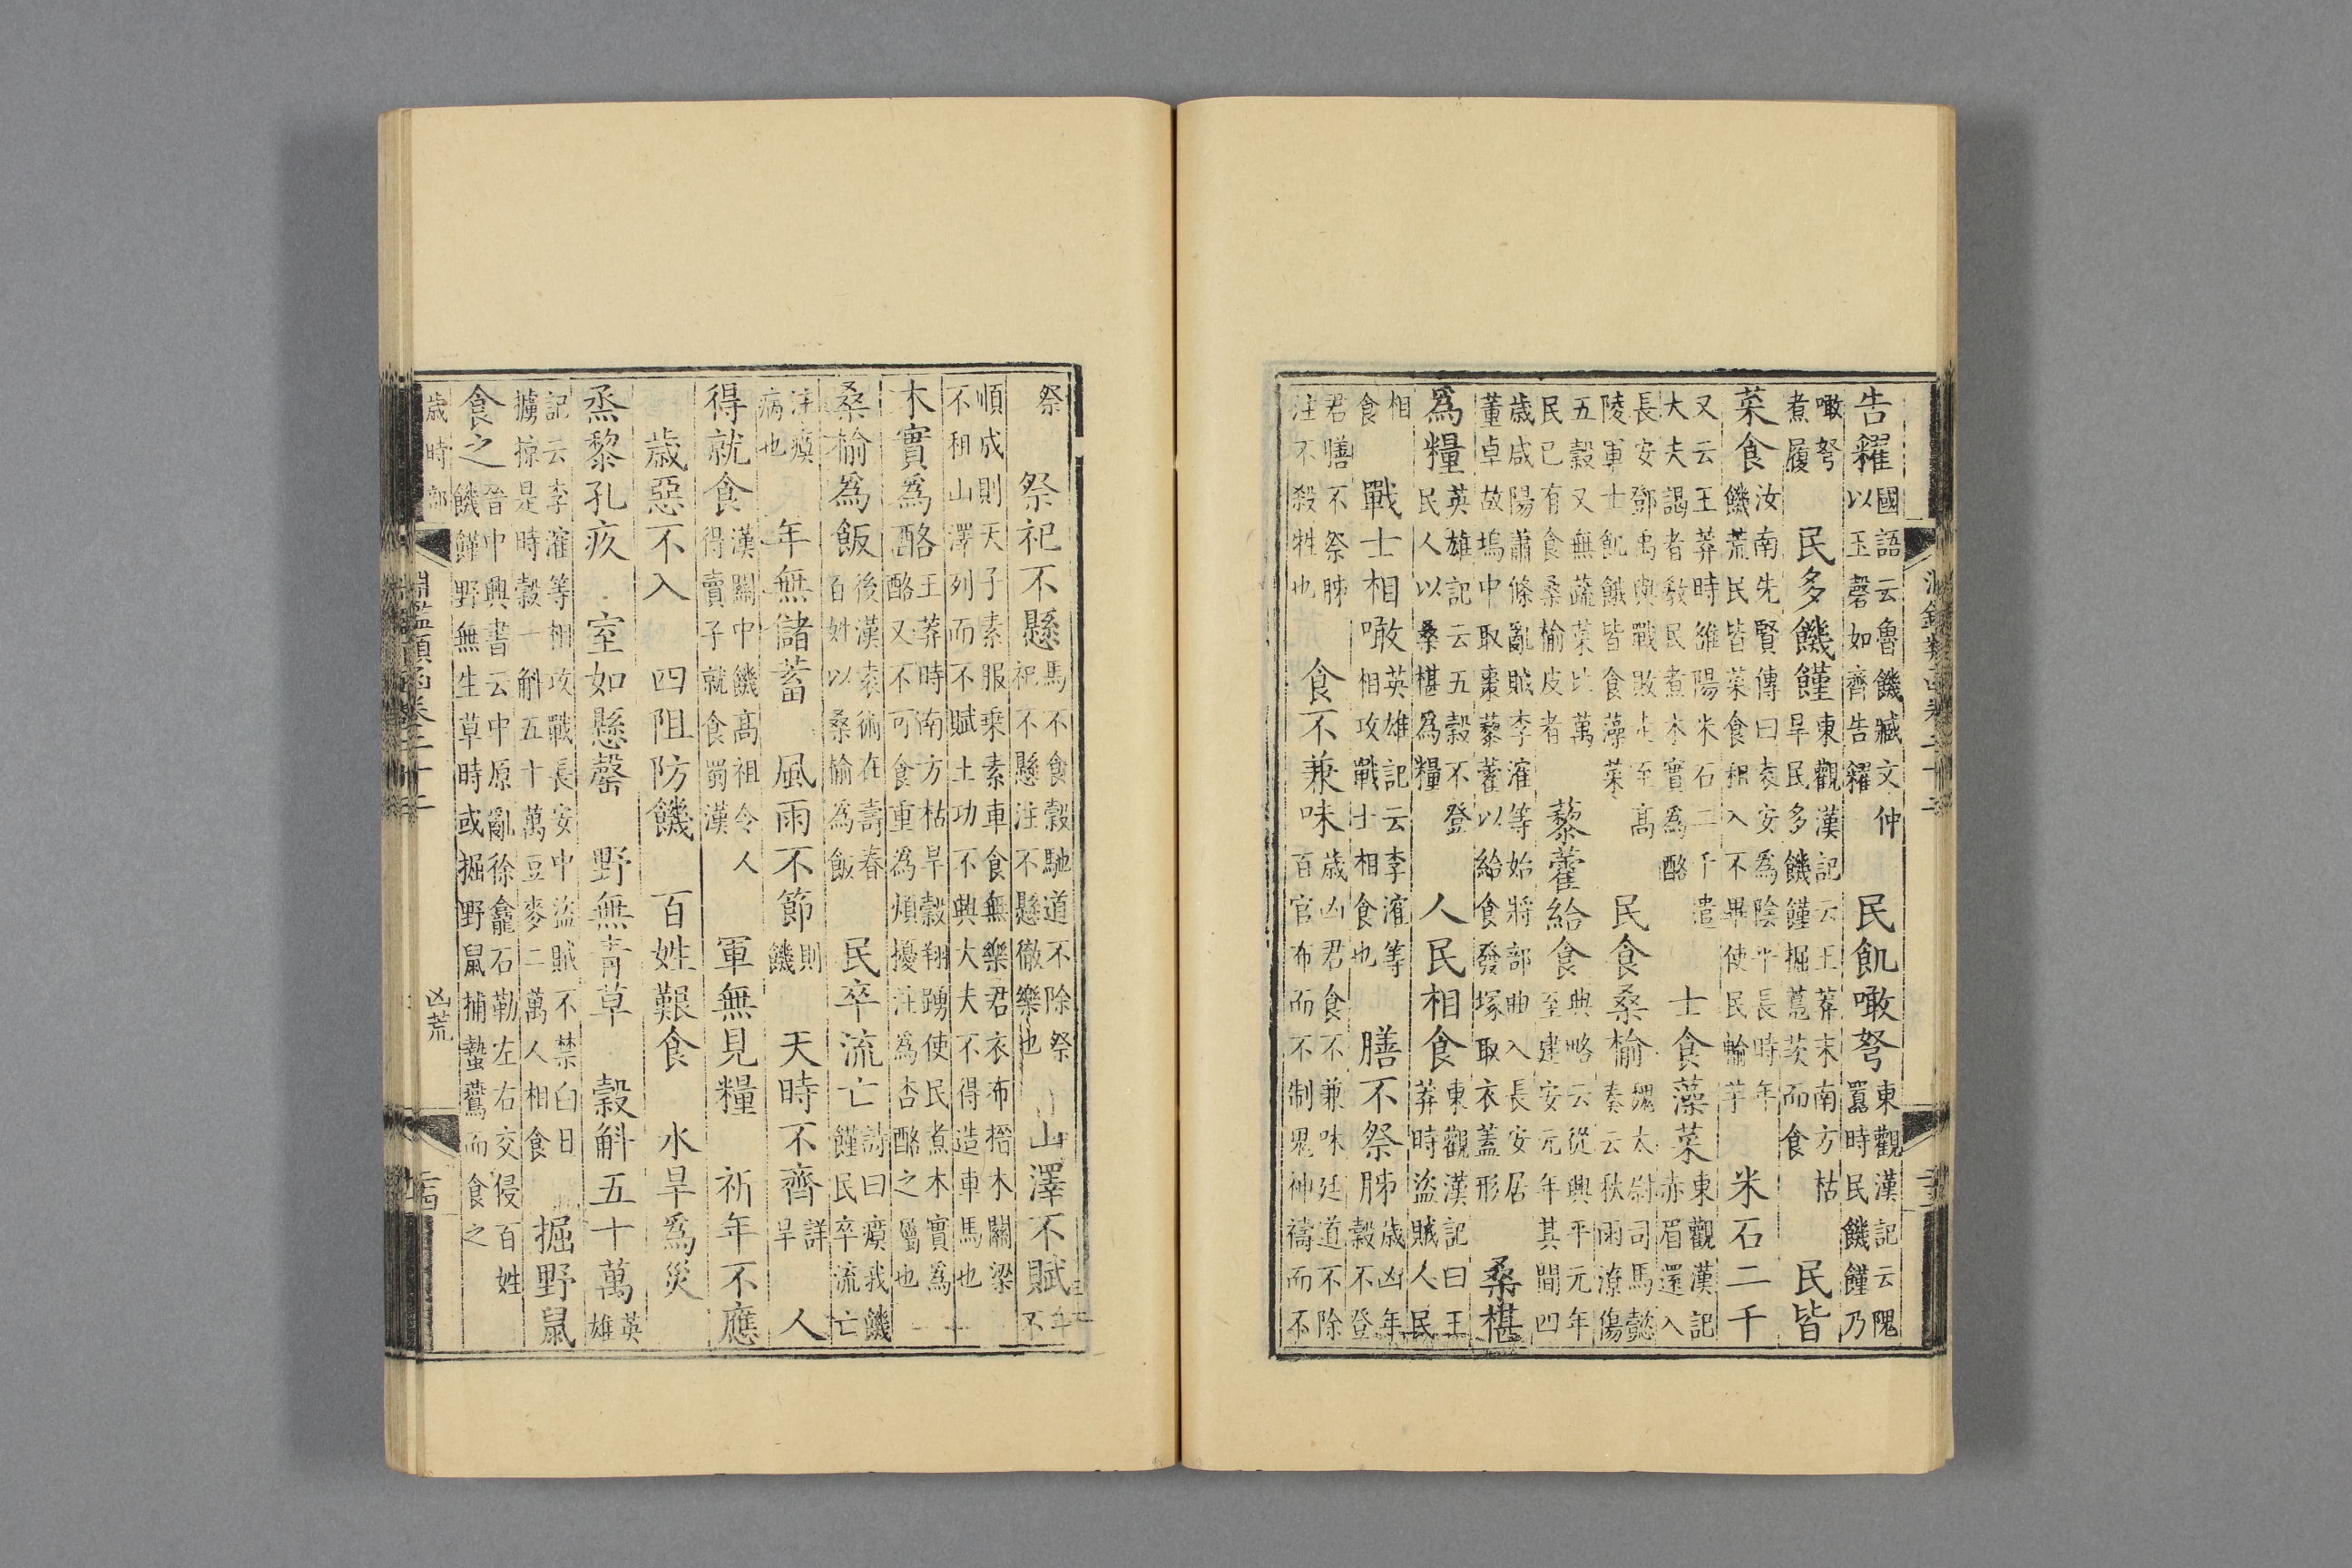 告糴國語云魯饑臧文仲以玉磬如齊告糴　民飢噉弩東觀漢記云隗囂時民饑饉乃
噉弩煮履　民多饑饉東觀漢記云王莽末南方枯旱民多饑饉掘鳧茨而食　民皆
菜食汝南先賢傳曰袁安為陰平長時年饑荒民皆菜食租入不畢使民輸芋　米石二千
又云王莽時雒陽米石二千遣大夫謁者教民煮木實為酪　士食藻菜東觀漢記赤眉還入
長安鄧禹與戰敗走至高陵軍士飢餓皆食藻菜　民食桑榆魏太尉司馬懿奏云秋雨潦傷
五穀又無蔬菜比萬民已有食桑榆皮者　藜藿給食典略云從興平元年至建安元年其間四
歲咸陽蕭條亂賊李漼等始將部曲入長安居董卓故塢中取棗藜藿以給食發塚取衣蓋形　桑椹
為糧英雄記云五穀不登民人以桑椹為糧　人民相食東觀漢記曰王莽時盜賊人民
相食　戰士相噉英雄記云李漼等相攻戰士相食也　膳不祭肺歲凶年穀不登
君膳不祭肺注不殺牲也　食不兼味歲凶君食不兼味廷道不除百官布而不制鬼神禱而不
祭　祭祀不懸馬不食穀馳道不除祭祀不懸注不懸徹樂也　山澤不賦年不
順成則天子素服乘素車食無樂君衣布搢木關梁不租山澤列而不賦土功不興大夫不得造車馬也
木實為酪王莽時南方枯旱穀翔踴使民煮木實為酪又不可食重為煩擾注為杏酪之屬也
桑榆為飯後漢袁術在壽春百姓以桑榆為飯　民卒流亡詩曰瘨我饑饉民卒流亡
注瘨病也　年無儲蓄　風雨不節則饑　天時不齊詳旱　人
得就食漢關中饑高祖令人得賣子就食蜀漢　軍無見糧　祈年不應
歲惡不入　四阻防饑　百姓艱食　水旱為災
烝黎孔疚　室如懸罄　野無青草　穀斛五十萬英雄
記云李漼等相攻戰長安中盜賊不禁白日擄掠是時穀一斛五十萬豆麥二萬人相食　掘野鼠
食之晉中興書云中原亂徐龕石勒左右交侵百姓饑饉野無生草時或掘野鼠捕蟄鷰而食之
歲時部
淵鑑類函卷二十二
凶荒